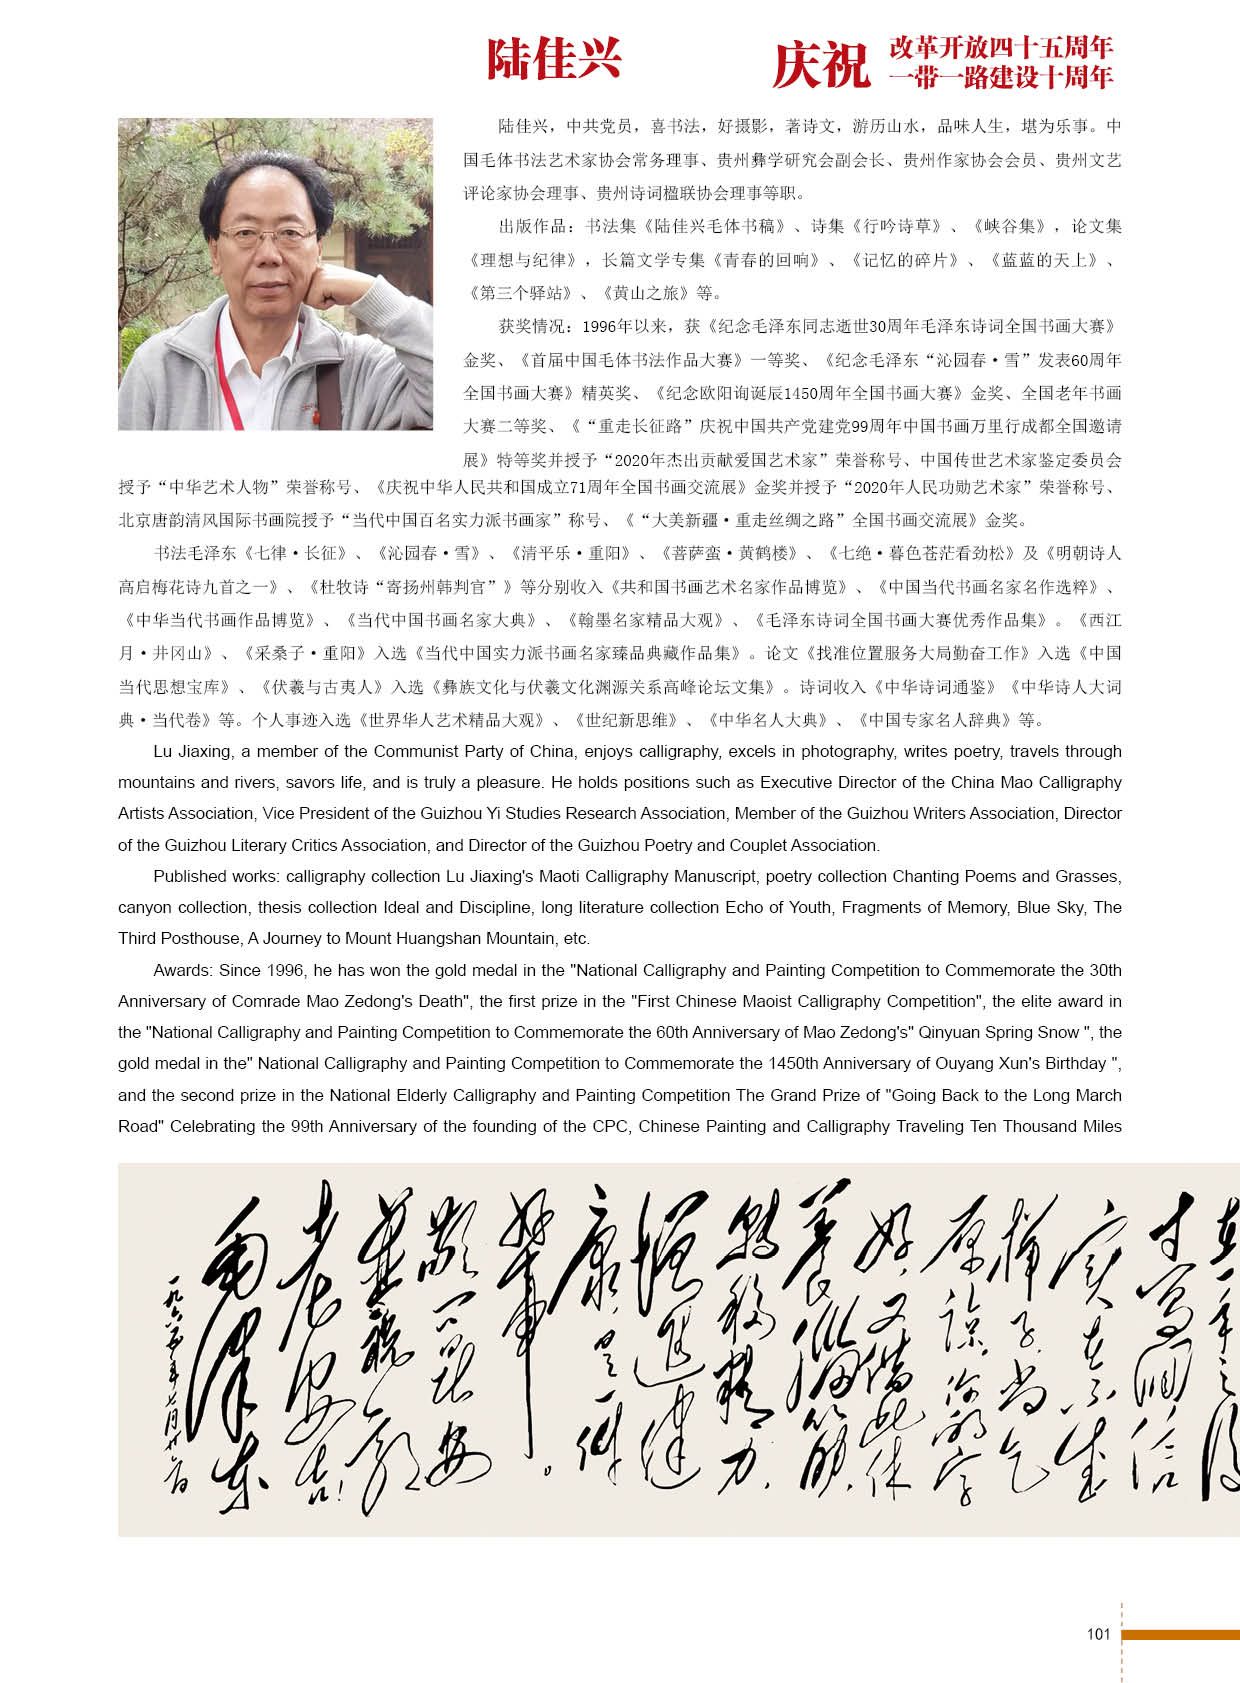 陆佳兴
庆祝
改革开放四十五周年
一带一路建设十周年
陆佳兴，中共党员，喜书法，好摄影，著诗文，游历山水，品味人生，堪为乐事。中
国毛体书法艺术家协会常务理事、贵州彝学研究会副会长、贵州作家协会会员、贵州文艺
评论家协会理事、贵州诗词楹联协会理事等职。
出版作品：书法集《陆佳兴毛体书稿》、诗集《行吟诗草》、《峡谷集》，论文集
《理想与纪律》，长篇文学专集《青春的回响》、《记忆的碎片》、《蓝蓝的天上》、
《第三个驿站》、《黄山之旅》等。
获奖情况：1996年以来，获《纪念毛泽东同志逝世30周年毛泽东诗词全国书画大赛》
金奖、《首届中国毛体书法作品大赛》一等奖、《纪念毛泽东“沁园春·雪”发表60周年
全国书画大赛》精英奖、《纪念欧阳询诞辰1450周年全国书画大赛》金奖、全国老年书画
大赛二等奖、《“重走长征路”庆祝中国共产党建党99周年中国书画万里行成都全国邀请
展》特等奖并授予“2020年杰出贡献爱国艺术家”荣誉称号、中国传世艺术家鉴定委员会
授予“中华艺术人物”荣誉称号、《庆祝中华人民共和国成立71周年全国书画交流展》金奖并授予“2020年人民功勋艺术家”荣誉称号、
北京唐韵清风国际书画院授予“当代中国百名实力派书画家”称号、《“大美新疆·重走丝绸之路”全国书画交流展》金奖。
书法毛泽东《七律·长征》、《沁园春·雪》、《清平乐·重阳》、《菩萨蛮·黄鹤楼》、《七绝·暮色苍茫看劲松》及《明朝诗人
高启梅花诗九首之一》、《杜牧诗“寄扬州韩判官”》等分别收入《共和国书画艺术名家作品博览》、《中国当代书画名家名作选粹》、
《中华当代书画作品博览》、《当代中国书画名家大典》、《翰墨名家精品大观》、《毛泽东诗词全国书画大赛优秀作品集》。《西江
月·井冈山》、《采桑子·重阳》入选《当代中国实力派书画名家臻品典藏作品集》。论文《找准位置服务大局勤奋工作》入选《中国
当代思想宝库》、《伏羲与古夷人》入选《彝族文化与伏羲文化渊源关系高峰论坛文集》。诗词收入《中华诗词通鉴》《中华诗人大词
典·当代卷》等。个人事迹入选《世界华人艺术精品大观》、《世纪新思维》、《中华名人大典》、《中国专家名人辞典》等。
Lu Jiaxing, a member of the Communist Party of China, enjoys calligraphy, excels in photography, writes poetry, travels through
mountains and rivers, savors life, and is truly a pleasure. He holds positions such as Executive Director of the China Mao Calligraphy
Artists Association, Vice President of the Guizhou Yi Studies Research Association, Member of the Guizhou Writers Association, Director
of the Guizhou Literary Critics Association, and Director of the Guizhou Poetry and Couplet Association.
Published works: calligraphy collection Lu Jiaxing's Maoti Calligraphy Manuscript, poetry collection Chanting Poems and Grasses,
canyon collection, thesis collection Ideal and Discipline, long literature collection Echo of Youth, Fragments of Memory, Blue Sky, The
Third Posthouse, A Journey to Mount Huangshan Mountain, etc.
Awards: Since 1996, he has won the gold medal in the "National Calligraphy and Painting Competition to Commemorate the 30th
Anniversary of Comrade Mao Zedong's Death", the first prize in the "First Chinese Maoist Calligraphy Competition", the elite award in
the "National Calligraphy and Painting Competition to Commemorate the 60th Anniversary of Mao Zedong's" Qinyuan Spring Snow ", the
gold medal in the" National Calligraphy and Painting Competition to Commemorate the 1450th Anniversary of Ouyang Xun's Birthday ",
and the second prize in the National Elderly Calligraphy and Painting Competition The Grand Prize of "Going Back to the Long March
Road" Celebrating the 99th Anniversary of the founding of the CPC, Chinese Painting and Calligraphy Traveling Ten Thousand Miles
寸写回信
实在不成
样子，尚乞
原谅。你的字
好，又借此休
养脑筋，
转移精力，
增进健
康，是一件
好事。
敬问起安
老安吉！
毛泽东
101